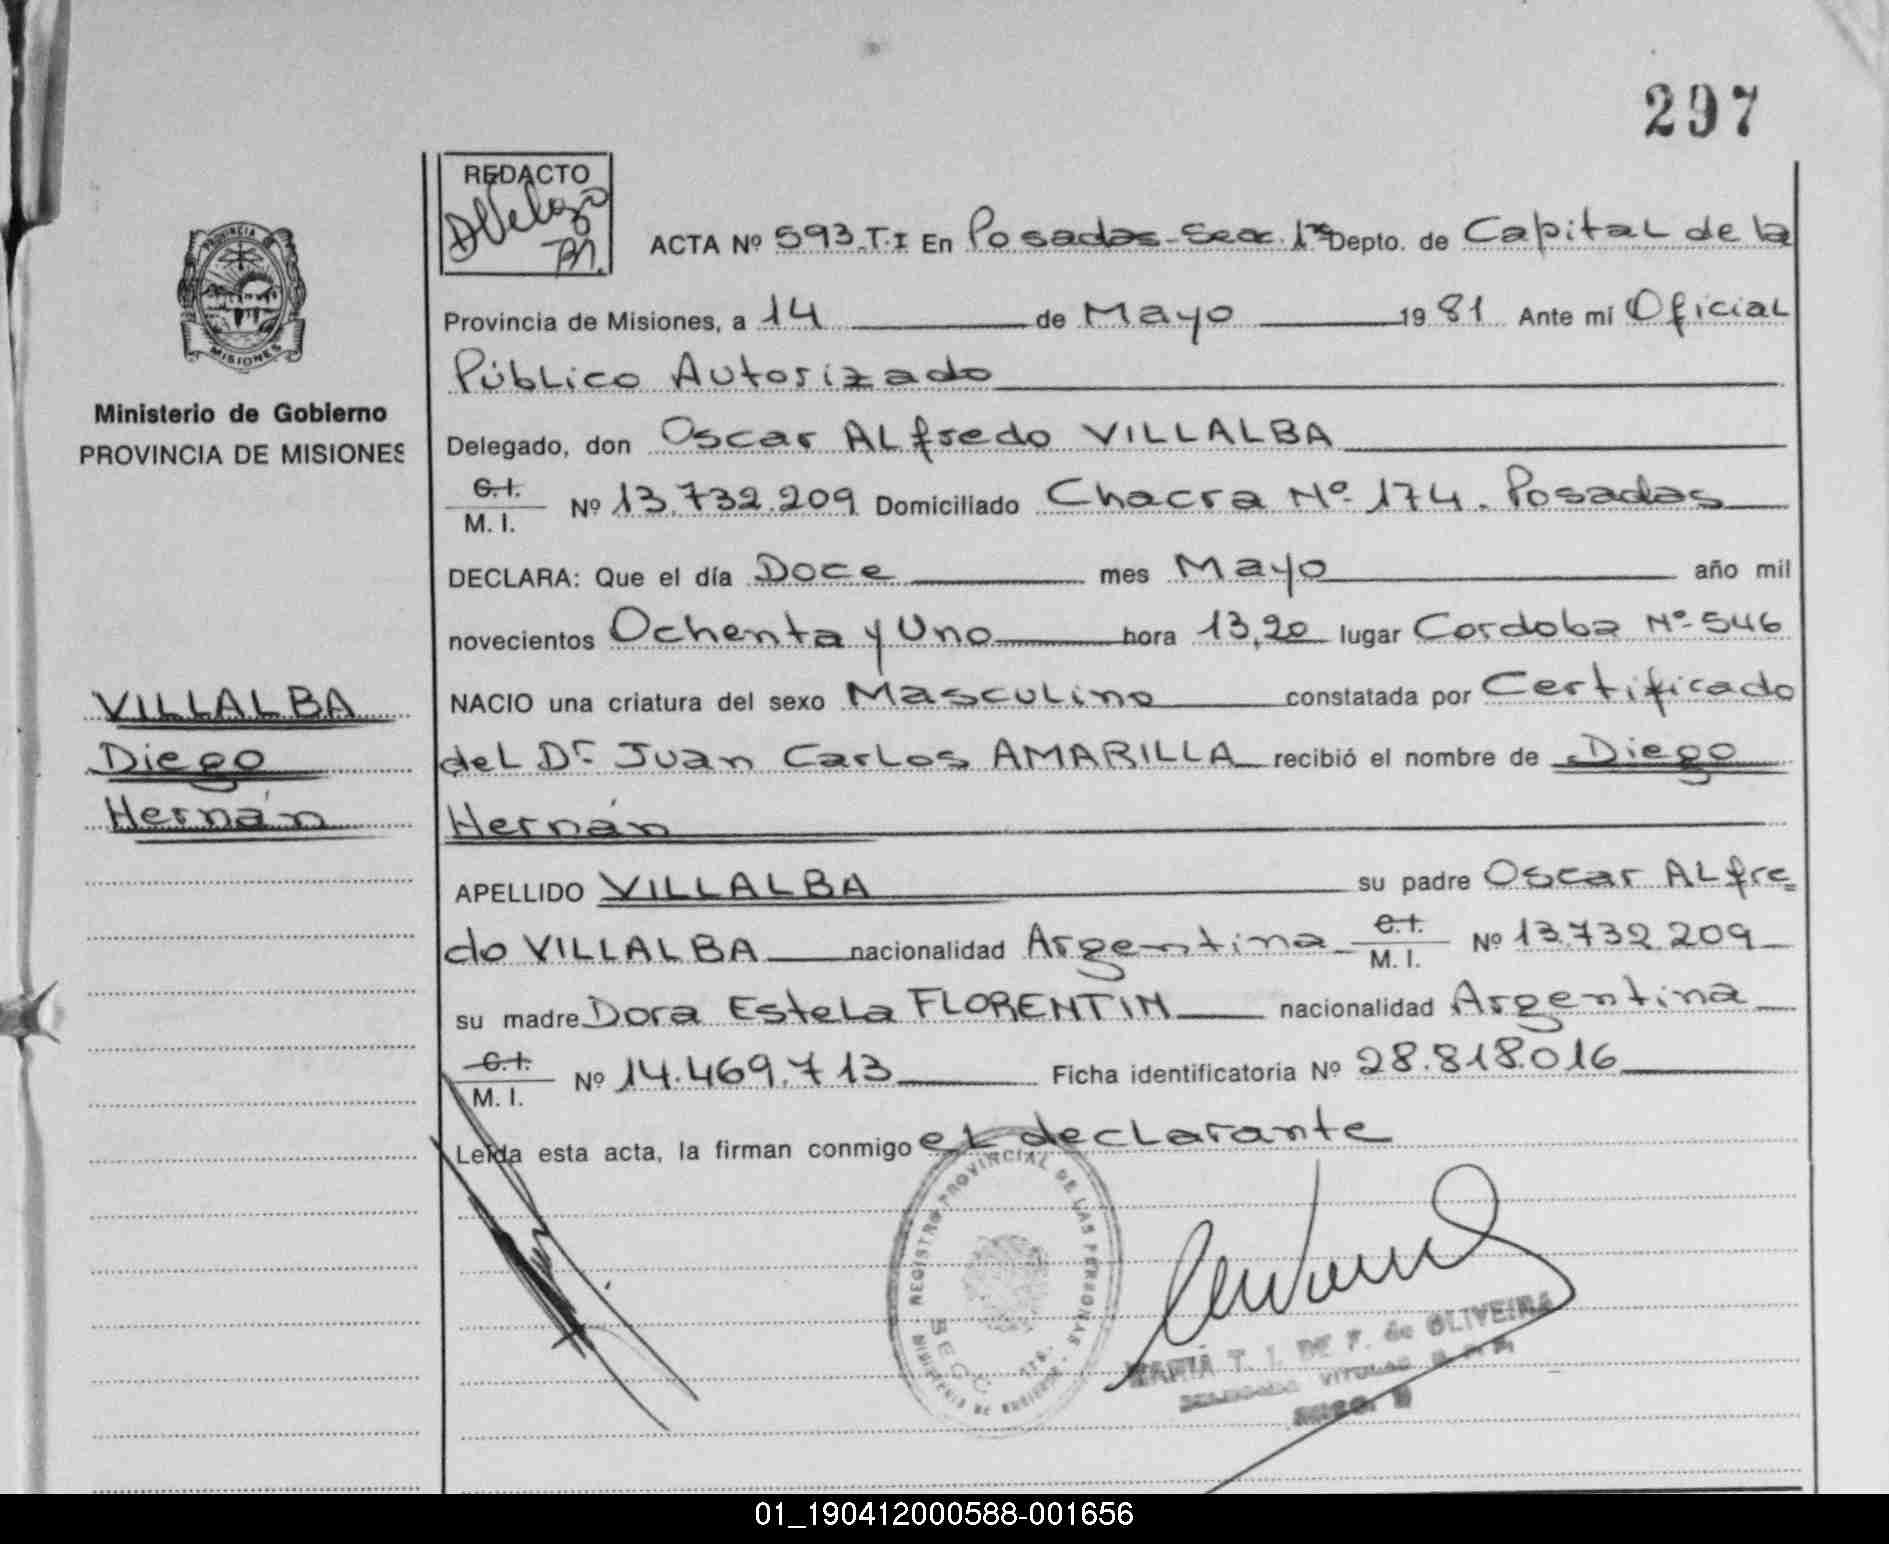 297
REDACTO
PROVINCIA DE
MISIONES
Ministerio de Gobierno
PROVINCIA DE MISIONES
VILLALBA
Diego
Hernán
ACTA Nº 593.T.I En Posadas-Secc. 1ra Depto. de Capital de la
Provincia de Misiones, a 14 de Mayo 1981 Ante mi Oficial
Público Autorizado
Delegado, don Oscar Alfredo VILLALBA
C.I.
M. I. Nº 13.732.209 Domiciliado Chacra Nº 174. Posadas
DECLARA: Que el día Doce mes Mayo año mil
novecientos Ochenta y Uno hora 13,20 lugar Cordoba Nº 546
NACIO una criatura del sexo Masculino constatada por Certificado
del Dr. Juan Carlos AMARILLA recibió el nombre de Diego
Hernán
APELLIDO VILLALBA su padre Oscar Alfre=
do VILLALBA nacionalidad Argentina C.I.
M. I. Nº 13.732.209
su madre Dora Estela FLORENTIN nacionalidad Argentina
C.I.
M. I. Nº 14.469.713 Ficha identificatoria Nº 28.818.016
Leída esta acta, la firman conmigo el declarante
REGISTRO PROVINCIAL DE LAS PERSONAS
MINISTERIO DE GOBIERNO
MARIA T. I. DE F. de OLIVEIRA
01_190412000588-001656